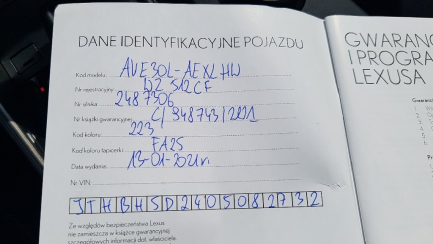 DANE IDENTYFIKACYJNE POJAZDU
Kod modelu AVE30L-AEXLHW
Nr rejestracyjny DZ 512CF
Nr silnika 2487306
Nr książki gwarancyjnej C/348743/2021
Kod koloru 223
Kod koloru tapicerki FA25
Data wydania 13-01-2021r
Nr VIN
JTHBHSD2405082732
Ze względów bezpieczeństwa Lexus
nie zamieszcza w książce gwarancyjnej
szczegółowych informacji dot. właściciela
GWARANC
I PROGRA
LEXUSA